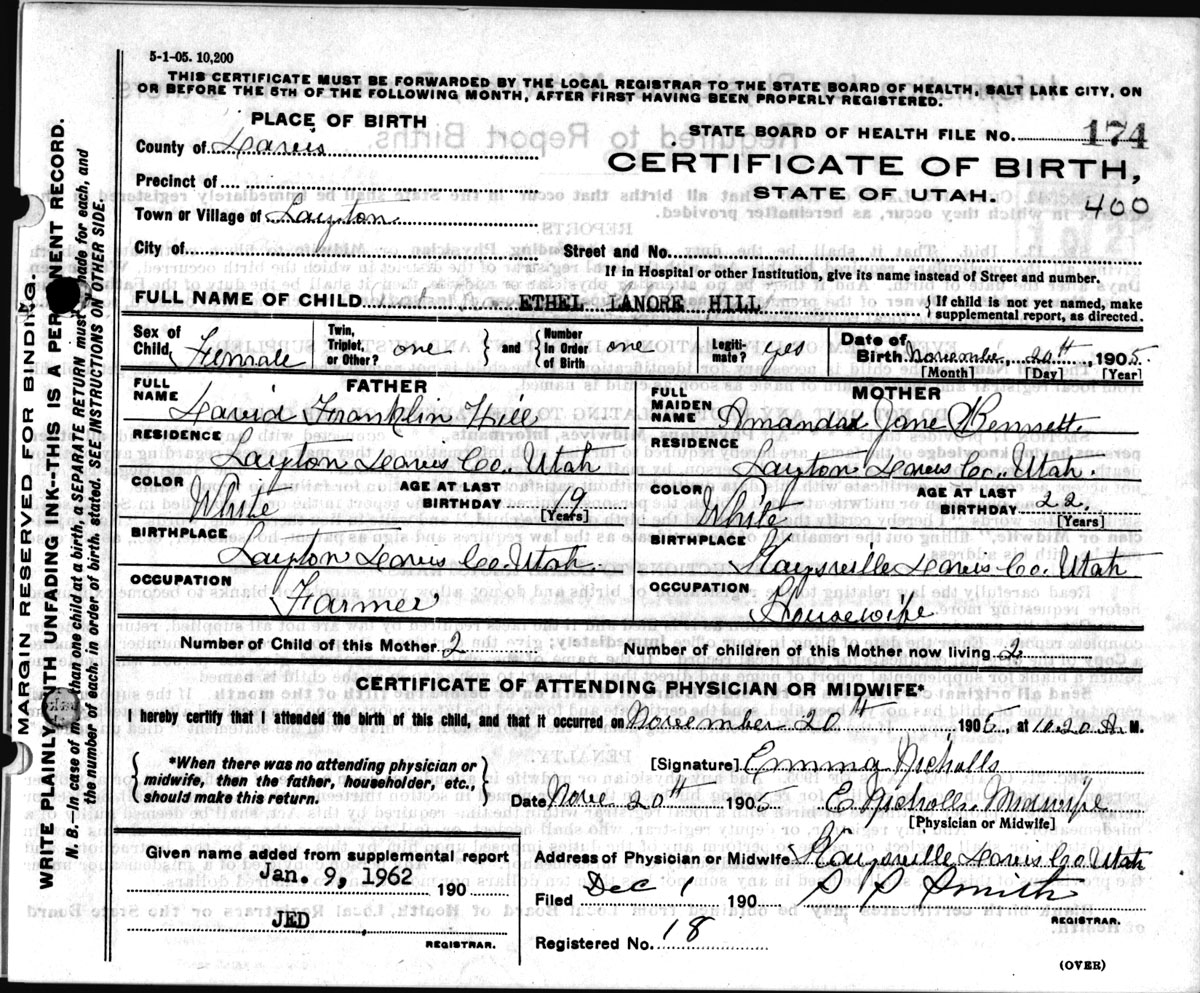 5-1-05. 10,200
THIS CERTIFICATE MUST BE FORWARDED BY THE LOCAL REGISTRAR TO THE STATE BOARD OF HEALTH, SALT LAKE CITY, ON
OR BEFORE THE 5TH OF THE FOLLOWING MONTH, AFTER FIRST HAVING BEEN PROPERLY REGISTERED.
PLACE OF BIRTH
County of Davis
Precinct of
Town or Village of Layton
City of
STATE BOARD OF HEALTH FILE NO. 174
CERTIFICATE OF BIRTH,
STATE OF UTAH.
400
Street and No.
If in Hospital or other Institution, give its name instead of Street and number.
FULL NAME OF CHILD ETHEL LANORE HILL
If child is not yet named, make
supplemental report, as directed.
Sex of Child Female
Twin, Triplet, or Other? one
and
Number In Order of Birth one
Legitimate? yes
Date of Birth November 20th 1905
[Month] [Day] [Year]
FATHER
FULL NAME David Franklin Hill
RESIDENCE
Layton Davis Co. Utah
COLOR White
AGE AT LAST BIRTHDAY 19
[Years]
BIRTHPLACE
Layton Davis Co. Utah.
OCCUPATION
Farmer
MOTHER
FULL MAIDEN NAME Amanda Jane Bennett
RESIDENCE
Layton Davis Co. Utah
COLOR White
AGE AT LAST BIRTHDAY 22.
[Years]
BIRTHPLACE
Kaysville Davis Co. Utah
OCCUPATION
Housewife
Number of Child of this Mother 2
Number of children of this Mother now living 2
CERTIFICATE OF ATTENDING PHYSICIAN OR MIDWIFE*
I hereby certify that I attended the birth of this child, and that it occurred on November 20th 1905, at 10.20 A. M.
*When there was no attending physician or
midwife, then the father, householder, etc.,
should make this return.
[Signature] Emma Nicholls
Date Nove 20th 1905 E Nicholls Midwife
[Physician or Midwife]
Given name added from supplemental report
Jan. 9, 1962 190
JED
REGISTRAR.
Address of Physician or Midwife Kaysville Davis Co. Utah
Filed Dec 1 190 Smith
REGISTRAR.
Registered No. 18
(OVER)
MARGIN RESERVED FOR BINDING.
WRITE PLAINLY WITH UNFADING INK--THIS IS A PERMANENT RECORD.
N. B.--In case of more than one child at a birth, a SEPARATE RETURN must be made for each, and
the number of each, in order of birth, stated. SEE INSTRUCTIONS ON OTHER SIDE.